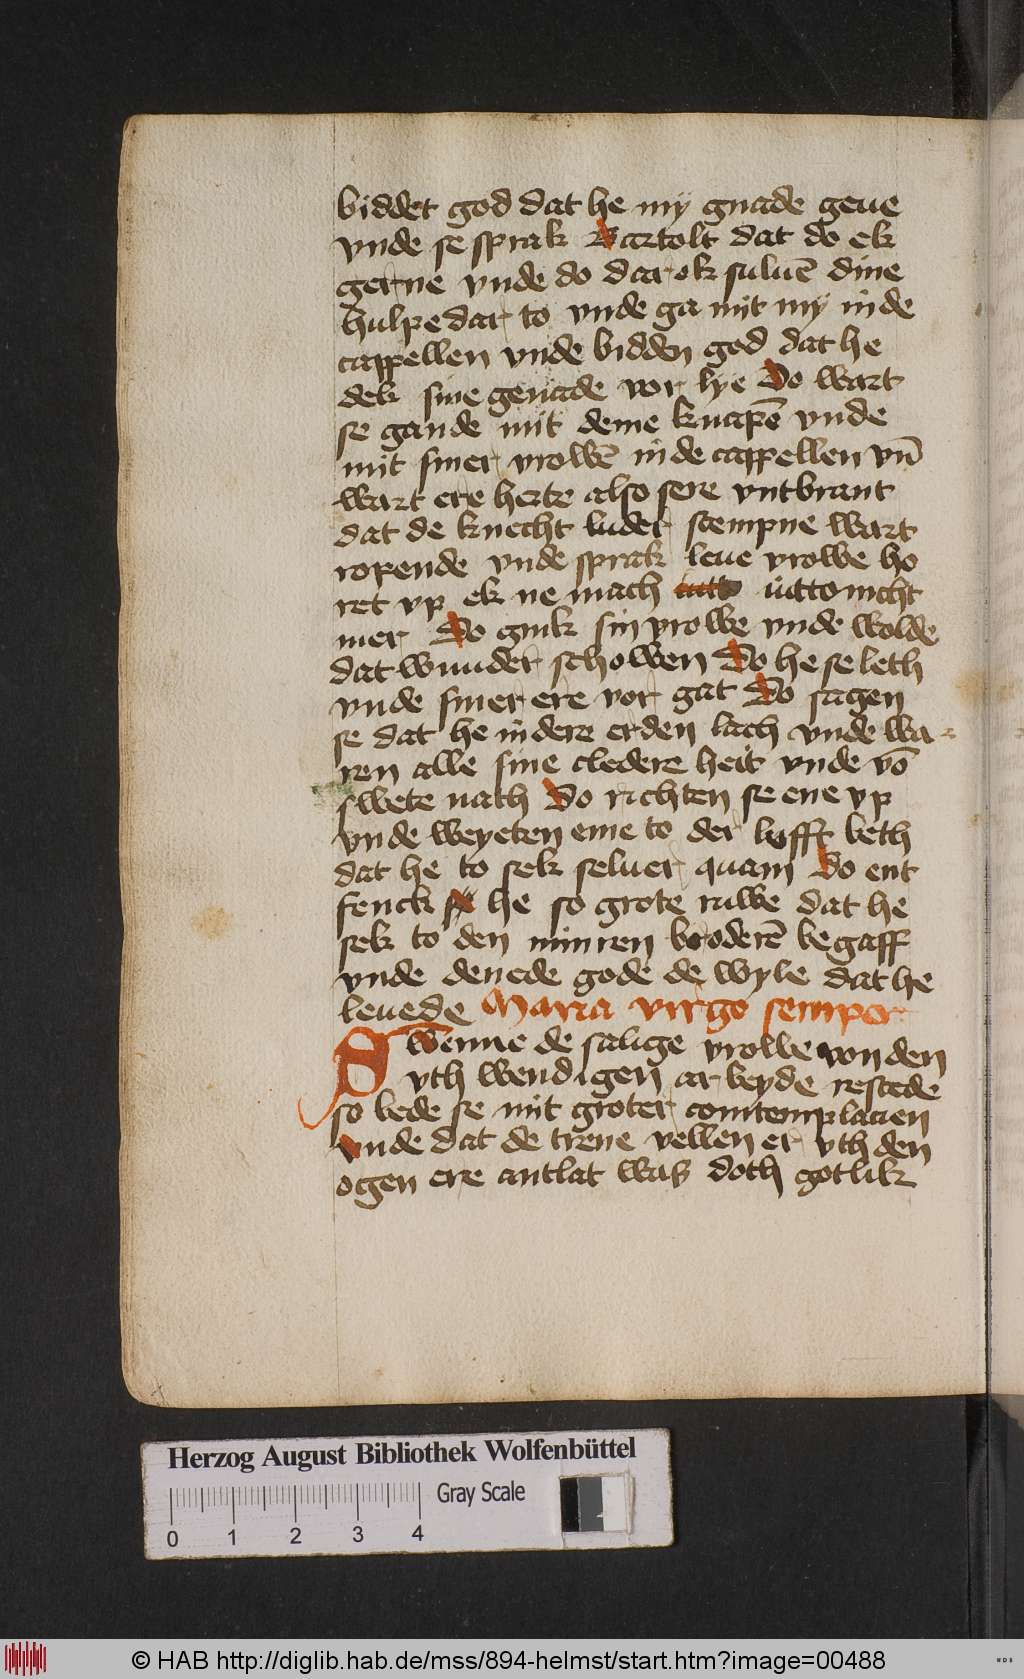 biddet god dat he my gnade geue
vnde se sprak Bartolt dat do ek
gerne vnde do dar ok suluē dine
hulpe dar to vnde ga mit my in de
cappellen vnde bidden god dat he
dek sine genade vor lye Do wart
se gande mit deme knapē vnde
mit siner vrowē in de cappellen vn̄
wart ere herte also sere vntbrant
dat de knecht luder stempne wart
ropende vnde sprak leue vrowe ho
ret vp ek ne mach uitto nicht
mer Do gink sin vrowe vnde wolde
dat wunder schowen Do he se leth
vnde siner ere vor gat Do sagen
se dat he in dere erden lach vnde wa-
ren alle sine cledere heit vnde vō
swete nath Do richten se ene vp
vnde weyeten eme to der lufft beth
dat he to sek seluer quam Do ent
fenck he so grote ruwe dat he
sek to den minren broderē begaff
vnde denede gode de wyle dat he
leuede Maria virgo semper
Swenne de salige vrowe von den
vth wendigen arbeyde restede
so bede se mit groter comtemplacien
vnde dat de trene vellen er vth den
ogen ere antlat was doth gotlik
Herzog August Bibliothek Wolfenbüttel
Gray Scale
0 1 2 3 4
© HAB http://diglib.hab.de/mss/894-helmst/start.htm?image=00488